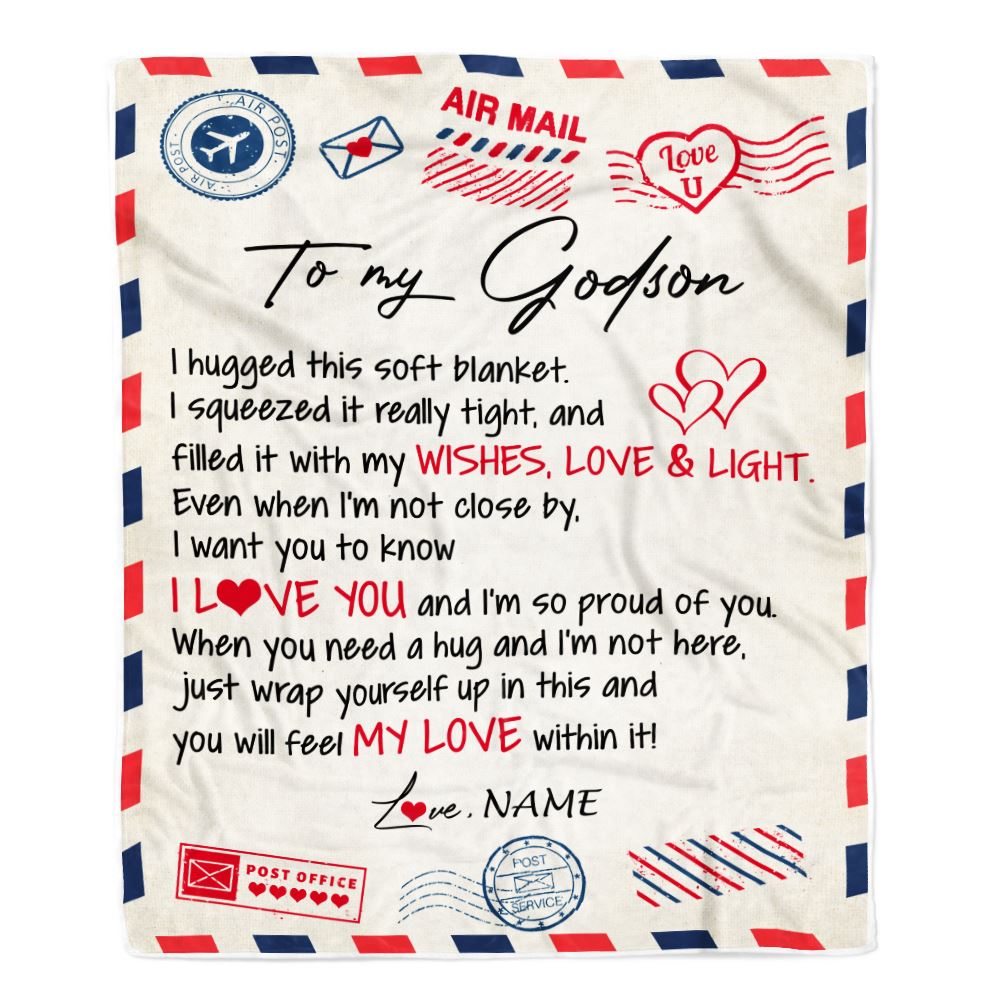 AIR POST
· AIR POST ·
AIR MAIL
Love
U
To my Godson
I hugged this soft blanket.
I squeezed it really tight, and
filled it with my WISHES, LOVE & LIGHT.
Even when I'm not close by,
I want you to know
I L♥VE YOU and I'm so proud of you.
When you need a hug and I'm not here,
just wrap yourself up in this and
you will feel MY LOVE within it!
L♥ve, NAME
POST OFFICE
POST
SERVICE